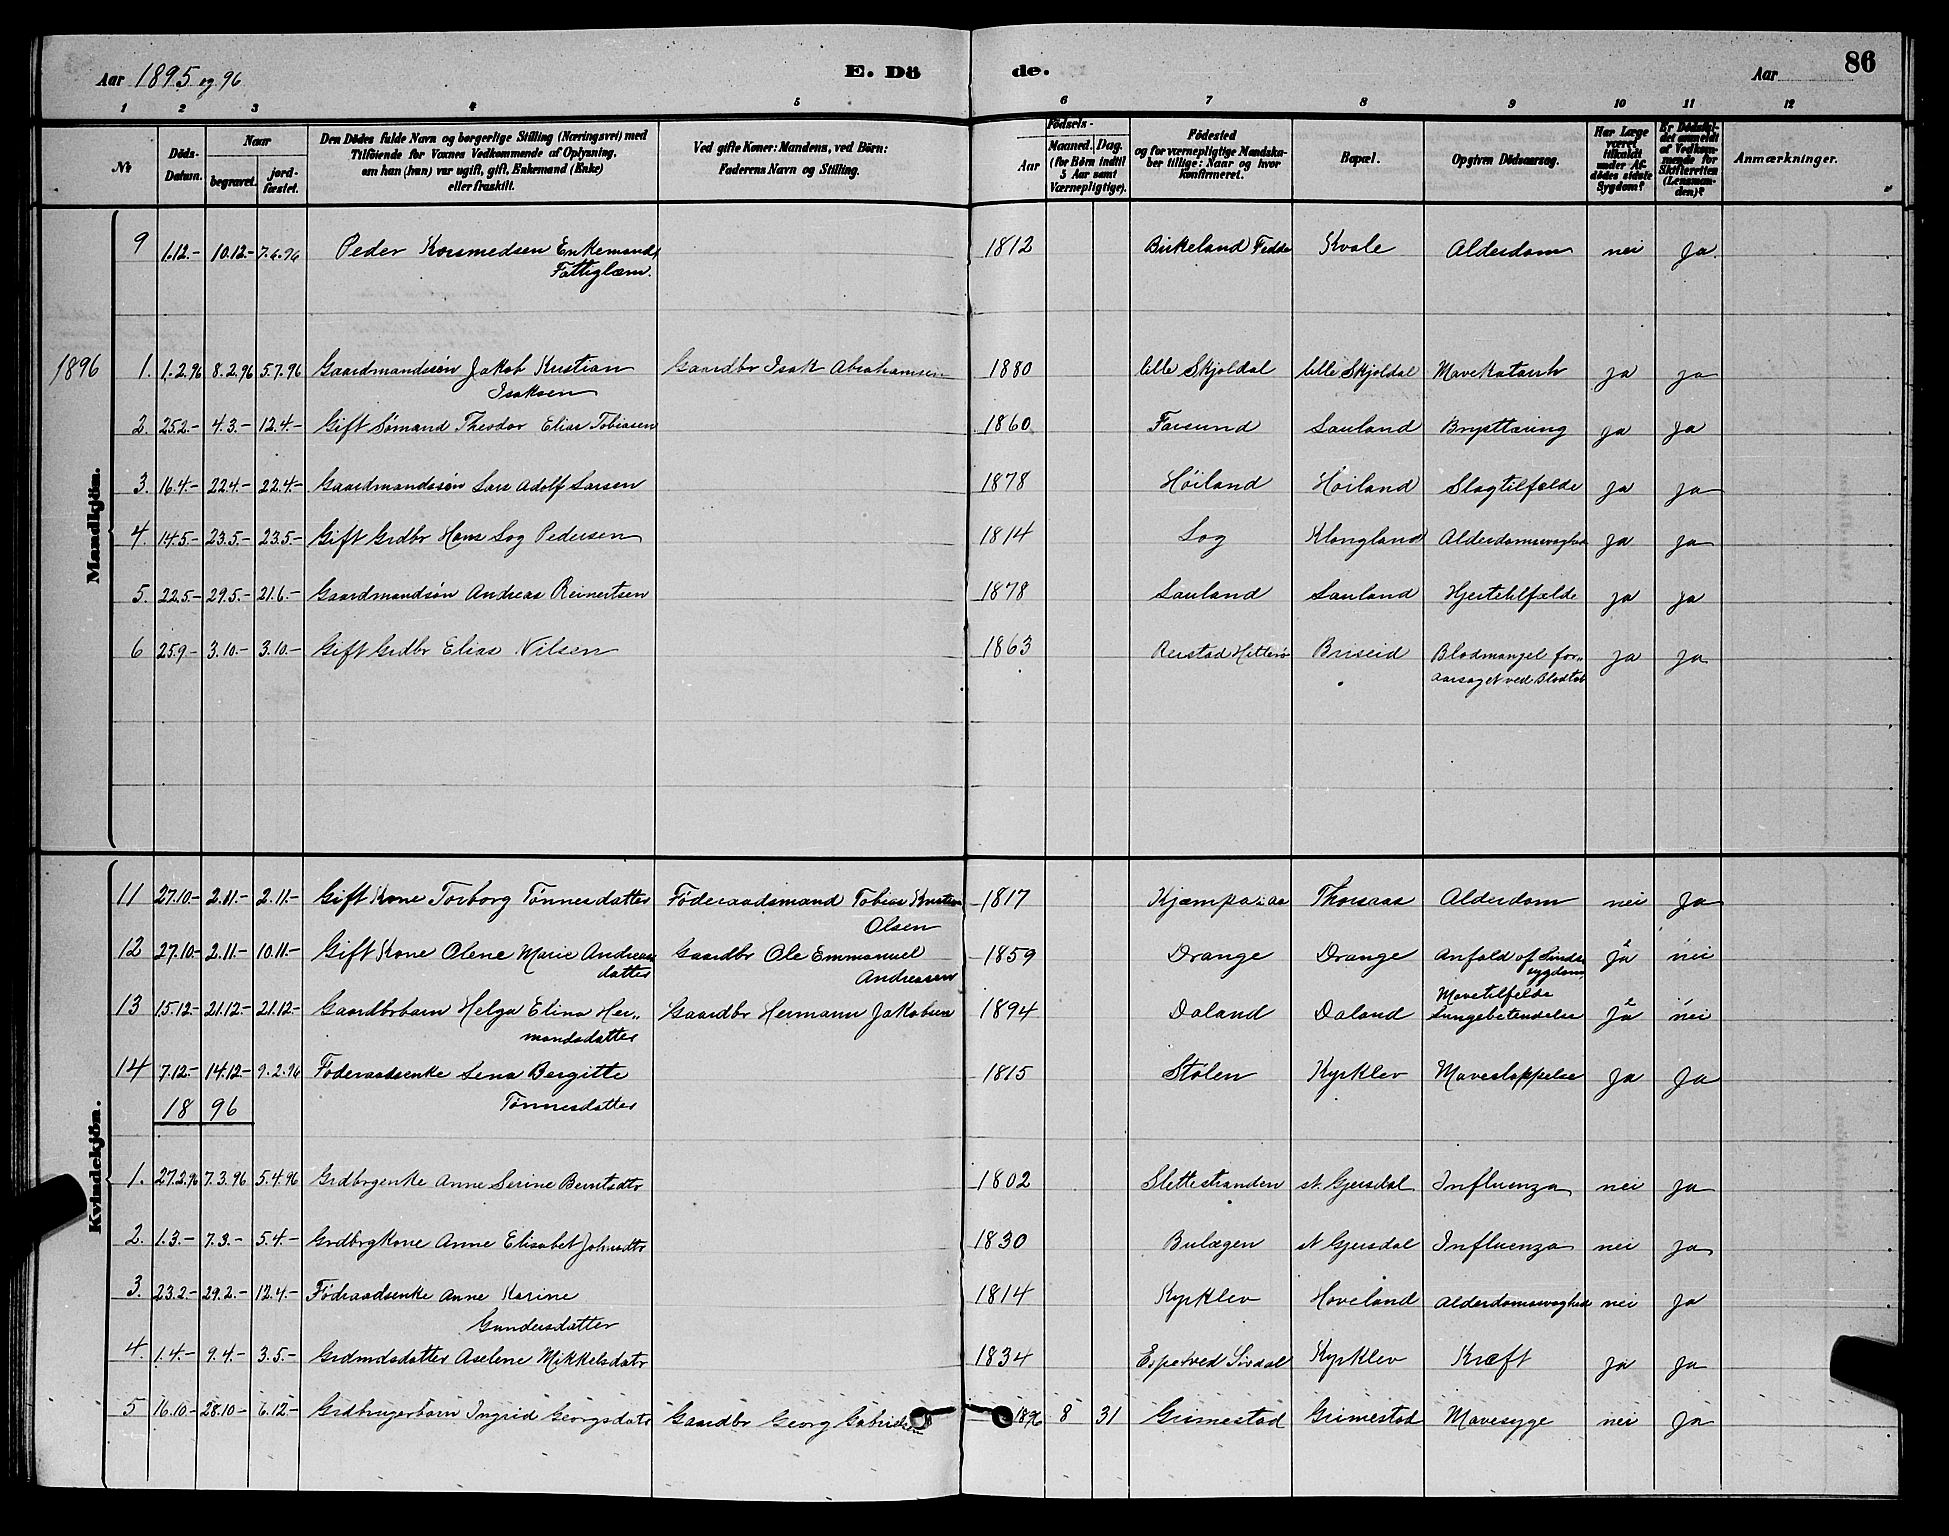 Aar 1895 og 96 E. Dö de. Aar 86
1 2 3 4 5 6 7 8 9 10 11 12
No
Döds-Datum.
Naar
begravet. jord-fæstet.
Den Dödes fulde Navn og borgerlige Stilling (Næringsvei) med
Tilföiende for Voxnes Vedkommende af Oplysning,
om han (hun) var ugift, gift, Enkemand (Enke)
eller fraskilt.
Ved gifte Koner: Mandens, ved Börn:
Faderens Navn og Stilling.
Födsels-
Aar Maaned. Dag.
(for Börn indtil
5 Aar samt
Værnepligtige).
Födested
og for værnepligtige Mandska-
ber tillige: Naar og hvor
konfirmeret.
Bopæl.
Opgiven Dödsaarsag.
Har Læge
været
tilkaldt
under Af-
dödes sidste
Sygdom?
Er Dödsfal-
det anmeldt
af Vedkom-
mende for
Skifteretten
(Lensman-
den)?
Anmærkninger.
Mandkjön.
9 1.12.- 10.12- 7.6.96 Peder Kosmedsen Enkemand, 1812 Birkeland Fedde Kvale Alderdom nei Ja
Fattiglem.
1896 1. 1.2.96 8.2.96 5.7.96 Gaardmandssön Jakob Kristian Gaardbr Isak Abrahamsen 1880 lille Skjoldal lille Skjoldal Mavekatarrh ja ja
Isaksen
2. 25.2.- 4.3.- 12.4.- Gift Sömand Theodor Elias Tobiasen 1860 Farsund Sauland Brysttæring ja ja
3. 16.4.- 22.4.- 22.4.- Gaardmandssön Lars Adolf Larsen 1878 Höiland Höiland Slagtilfælde ja ja
4. 14.5.- 23.5.- 23.5.- Gift Grdbr Hans Log Pedersen 1814 Log Klongland Alderdomssvaghed ja ja
5. 22.5.- 29.5.- 21.6.- Gaardmandsön Andreas Reinertsen 1878 Sauland Sauland Hjertetilfælde ja ja
6 25.9- 3.10.- 3.10.- Gift Grdbr Elias Nilsen 1863 Hitterö Briseid Blodmangel for-
aarsaget ved Blodtab ja ja
Kvindekjön.
11 27.10.- 2.11.- 2.11.- Gift Kone Torborg Tönnesdatter Föderaadsmand Tobias Kristian 1817 Thorsaas Alderdom nei Ja
Olsen
12 27.10- 2.11- 10.11.- Gift Kone Olene Marie Andreas Gaardbr Ole Emmanuel 1859 Drange Drange Anfald af Sinds- Ja nei
datter Andreassen sygdom
13 15.12- 21.12.- 21.12- Gaardbrbarn Helga Elina Her- Gaardbr Hermann Jakobsen 1894 Daland Daland Mavetilfelde
Lungebetendelse Ja nei
mandsdatter
14 7.12.- 14.12- 9.2.96 Föderaadsenke Lena Bergitte 1815 Stölen Kyrklev Maveslappelse Ja Ja
18 96 Tönnesdatter
1. 27.2.96 7.3.96 5.4.96 Grdbrgenke Anne Serine Berntsdtr 1802 Slettestranden st. Gjersdal Influenza nei ja
2. 1.3.- 7.3.- 5.4.- Grdbrgkone Anne Elisabet Johnsdtr 1830 Bulægen st Gjersdal Influenza nei ja
3. 23.2- 29.2.- 12.4.- Födraadsenke Anne Karine 1814 Kyrklev Hoveland Alderdomssvaghed nei ja
Gundersdatter
4. 1.4.- 9.4.- 3.5.- Grdmdsdatter Aselene Mikkelsdatr 1834 Espetved Sirdal Kyrklev Kræft ja ja
5 16.10.- 28.10- 6.12- Grdbrugerbarn Ingrid Georgsdatr Gaardbr Georg Gabrielsen 1896 8 31 Grimestad Grimestad Mavesyge nei Ja